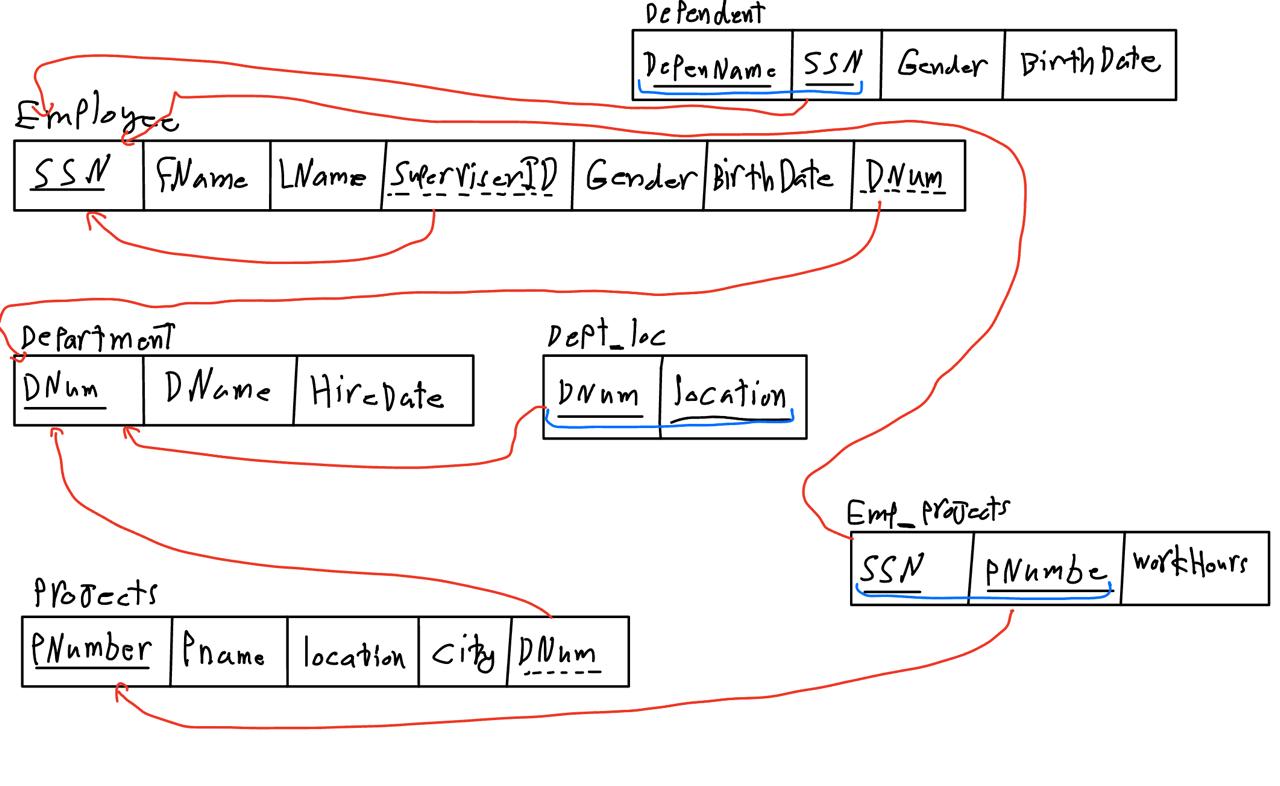 Dependent
DepenName SSN Gender BirthDate
Employee
SSN FName LName SuperviserID Gender BirthDate DNum
Department
DNum DName HireDate
Dept_loc
DNum location
Emp_projects
SSN PNumbe workHours
Projects
PNumber Pname location city DNum